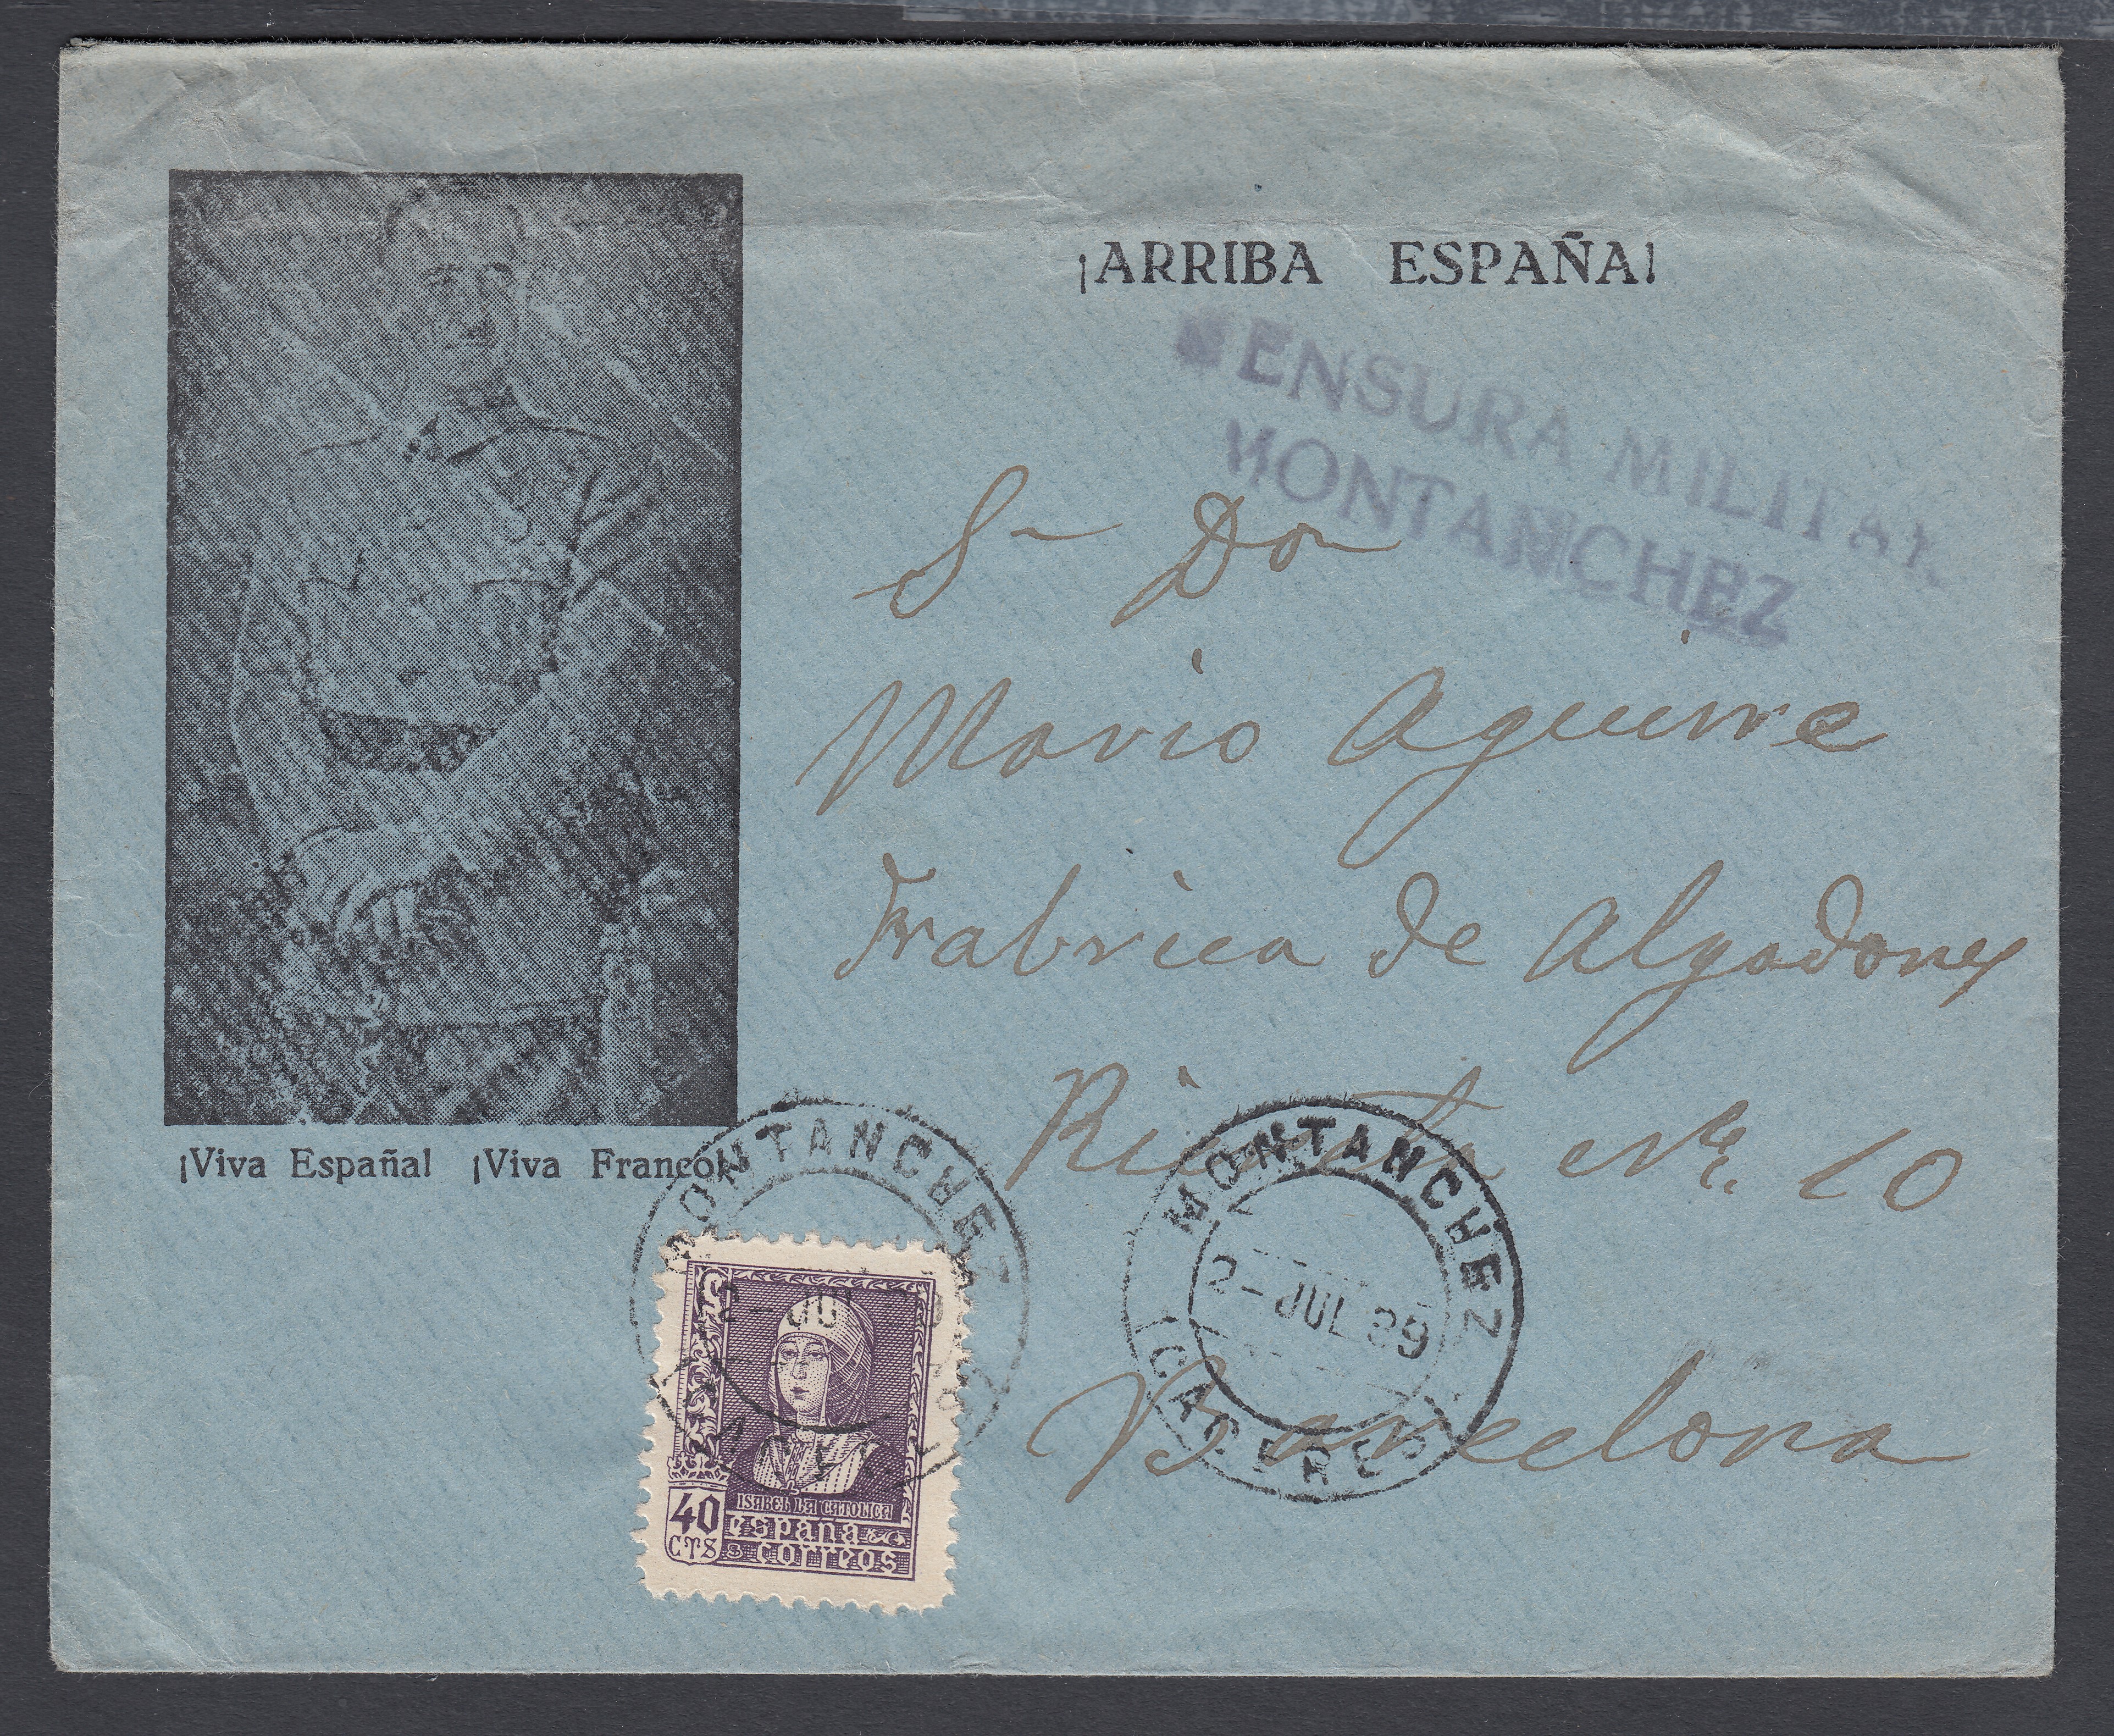 ¡ARRIBA ESPAÑA!
CENSURA MILITAR
MONTANCHEZ
Sr Don
Mario Aguirre
Fabrica de Algodones
Nº 10
Barcelona
¡Viva España! ¡Viva Franco!
MONTANCHEZ
2-JUL 39
(CACERES)
MONTANCHEZ
2-JUL
CACERES
ISABEL LA CATOLICA
40 CTS
españa
correos